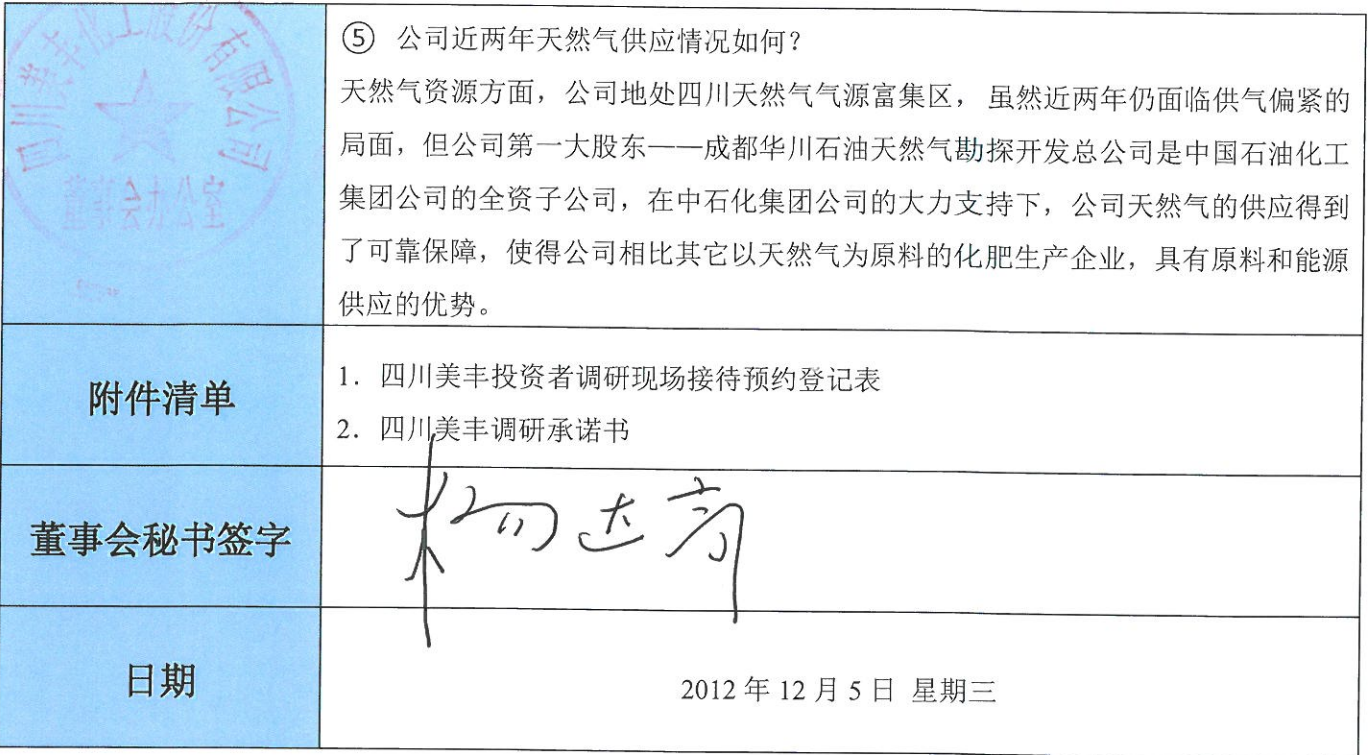 四川美丰化工股份有限公司
董事会办公室
⑤ 公司近两年天然气供应情况如何？
天然气资源方面，公司地处四川天然气气源富集区， 虽然近两年仍面临供气偏紧的
局面，但公司第一大股东——成都华川石油天然气勘探开发总公司是中国石油化工
集团公司的全资子公司，在中石化集团公司的大力支持下，公司天然气的供应得到
了可靠保障，使得公司相比其它以天然气为原料的化肥生产企业，具有原料和能源
供应的优势。
附件清单
1．四川美丰投资者调研现场接待预约登记表
2．四川美丰调研承诺书
董事会秘书签字
杨达高
日期
2012 年 12 月 5 日 星期三